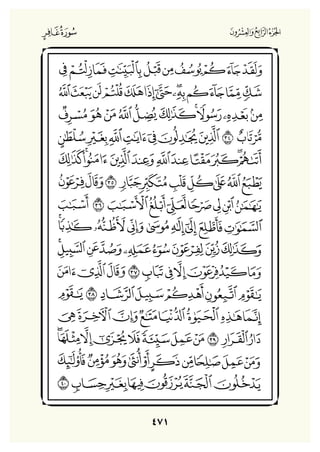 الجزء الرابع والعشرون
سورة غافر
ولقد جاءكم يوسف من قبل بالبينات فما زلتم في
شك مما جاءكم به حتى إذا هلك قلتم لن يبعث الله
من بعده رسولا كذلك يضل الله من هو مسرف
مرتاب ٣٤ الذين يجادلون في آيات الله بغير سلطان
أتاهم كبر مقتا عند الله وعند الذين آمنوا كذلك
يطبع الله على كل قلب متكبر جبار ٣٥ وقال فرعون
يا هامان ابن لي صرحا لعلي أبلغ الأسباب ٣٦ أسباب
السماوات فأطلع إلى إله موسى وإني لأظنه كاذبا
وكذلك زين لفرعون سوء عمله وصد عن السبيل
وما كيد فرعون إلا في تباب ٣٧ وقال الذي آمن
يا قوم اتبعون أهدكم سبيل الرشاد ٣٨ يا قوم
إنما هذه الحياة الدنيا متاع وإن الآخرة هي
دار القرار ٣٩ من عمل سيئة فلا يجزى إلا مثلها
ومن عمل صالحا من ذكر أو أنثى وهو مؤمن فأولئك
يدخلون الجنة يرزقون فيها بغير حساب ٤٠
٤٧١